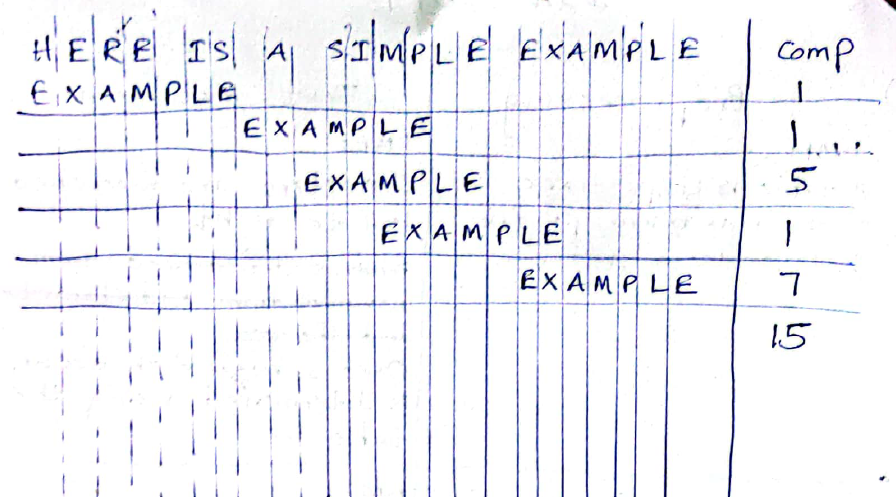 HERE IS A SIMPLE EXAMPLE Comp
EXAMPLE 1
EXAMPLE 1...
EXAMPLE 5
EXAMPLE 1
EXAMPLE 7
15